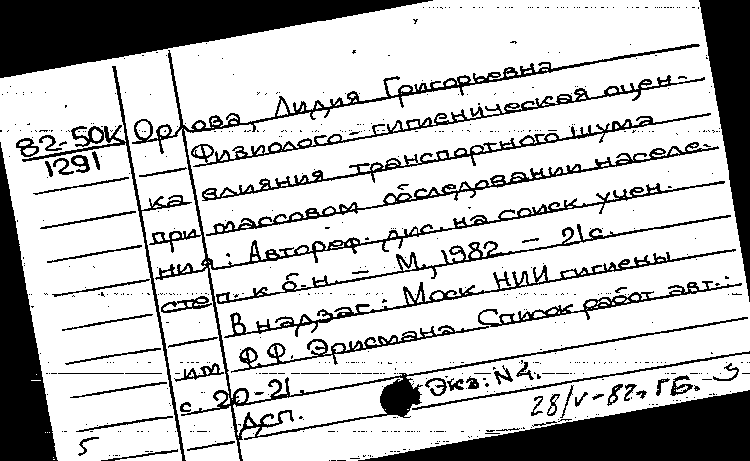 82-50К Орлова, Лидия Григорьевна
1291
Физиолого-гигиеническая оцен-
ка влияния транспортного шума
при массовом обследовании населе-
ния: Автореф. дис. на соиск. учен.
степ. к.б.н. - М., 1982. - 21с.
В надзаг.: Моск. НИИ гигиены
им. Ф.Ф. Эрисмана. Список работ авт.:
с. 20-21. Экз: N4.
ДСП. 28/V-82г. ГБ.
5